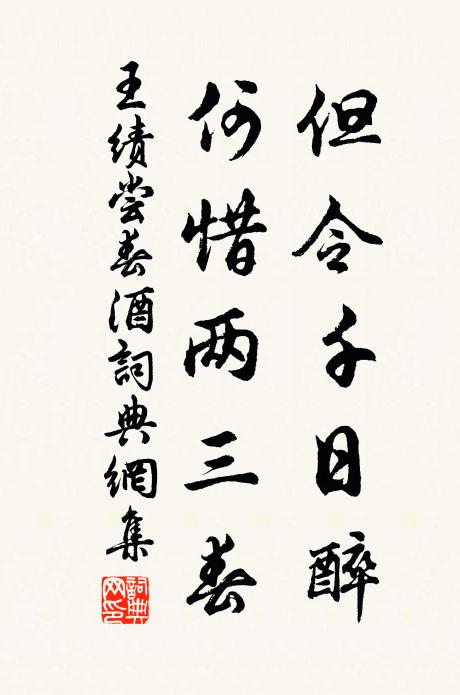 但令千日醉
何惜两三春
王績尝春酒詞典網集
詞典
网印